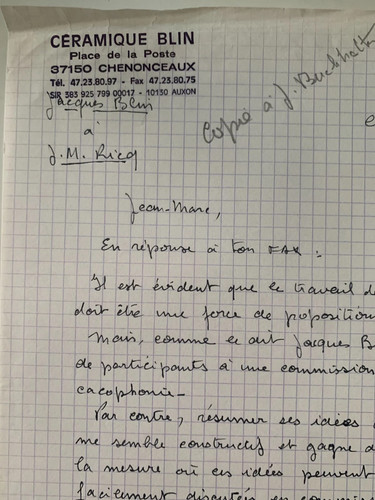 CÉRAMIQUE BLIN
Place de la Poste
37150 CHENONCEAUX
Tél. 47.23.80.97 - Fax 47.23.80.75
SIR 383 925 799 00017 - 10130 AUXON
Jacques Blin
à
J.M. Ricq
Copie à J. Buchholtz
Jean-Marc,
En réponse à ton FAX :
Il est évident que le travail d
doit être une force de proposition
Mais, comme le dit Jacques B
de participants à une commission
cacophonie-
Par contre, résumer ses idées
me semble constructif et gagne d
la mesure où ces idées peuvent
facilement discutées en